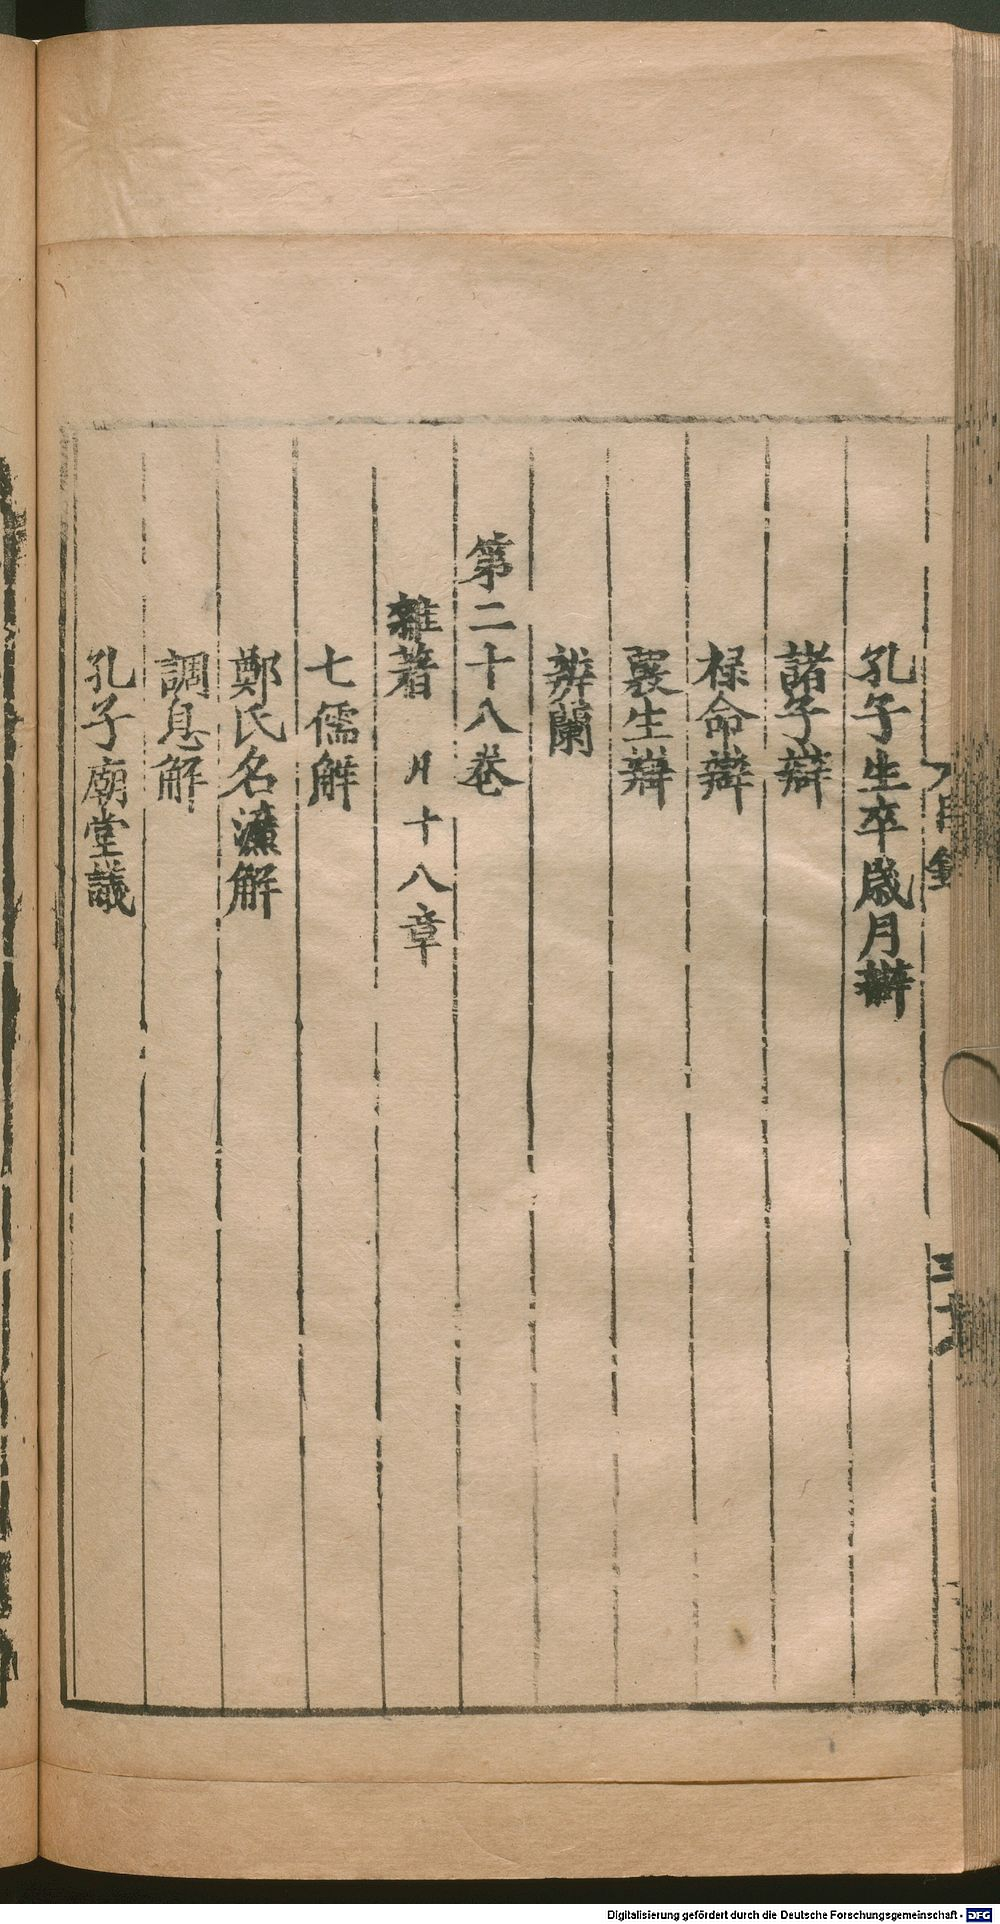 孔子生卒歲月辯
諸子辯
祿命辯
爰生辯
辨蘭
第二十八卷
雜著 凡十八章
七儒解
鄭氏名濂解
調息解
孔子廟堂議
目錄
Digitalisierung gefördert durch die Deutsche Forschungsgemeinschaft - DFG